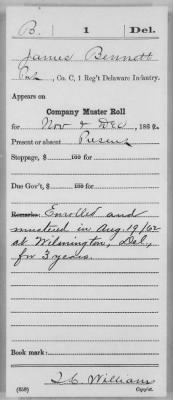 B. 1 Del.
James Bennett
Pvt, Co. C, 1 Reg't Delaware Infantry.
Appears on
Company Muster Roll
for Nov & Dec, 1862.
Present or absent Present
Stoppage, $ 100 for
Due Gov't, $ 100 for
Remarks: Enrolled and
mustered in Aug. 19/62
at Wilmington, Del,
for 3 years.
Book mark:
Williams
(858) Copyist.